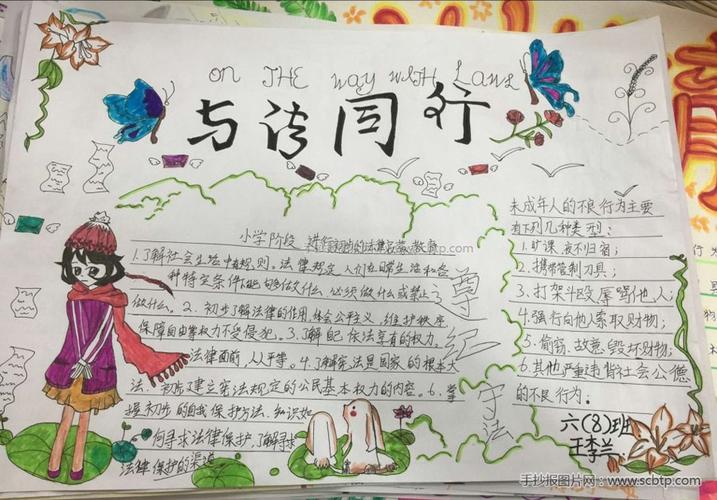 ON THE WAY WITH LAWS
与法同行
小学阶段 进行初步的法律启蒙教育
1.了解社会生活中有规则。法律规定人们在日常生活和各
种特定条件下能够做什么、必须做什么或禁止
做什么。2.初步了解法律的作用,体会公平正义,维护秩序,
保障自由等权力不受侵犯。3.了解自己依法享有的权力。
法律面前,人人平等。4.了解宪法是国家的根本大
法、初步了建立宪法规定的公民基本权力的内容。6.掌
握初步的自我保护方法、知识如
何寻求法律保护,了解寻求
法律保护的渠道
尊纪守法
未成年人的不良行为主要
有下列几种类型:
1.旷课、夜不归宿;
2.携带管制刀具;
3.打架斗殴、辱骂他人;
4.强行向他人索取财物;
5.偷窃、故意毁坏财物;
6.其他严重违背社会公德
的不良行为。
六(8)班
王李兰
手抄报图片网:www.scbtp.com